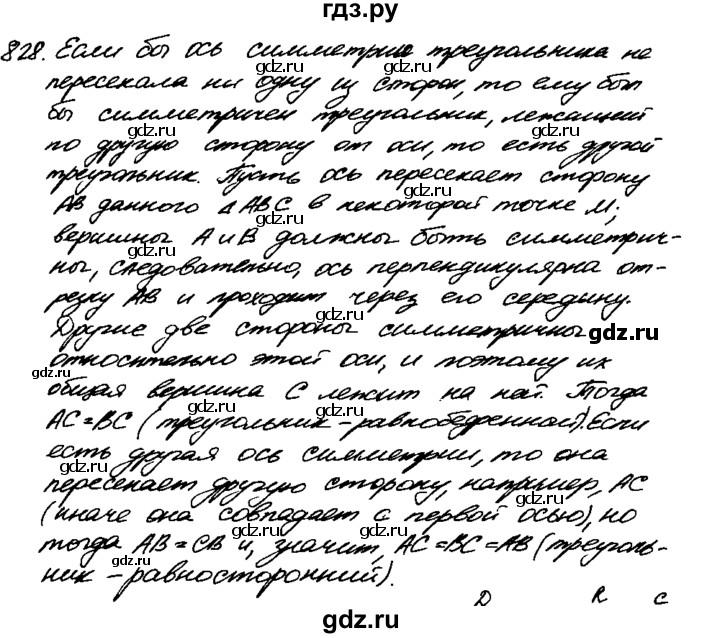 гдз.ру
828. Если бы ось симметрии треугольника не
пересекала ни одну из сторон, то ему был
бы симметричен треугольник, лежащий
по другую сторону от оси, то есть другой
треугольник. Пусть ось пересекает сторону
АВ данного △ АВС в некоторой точке М;
вершины А и В должны быть симметрич-
ны, следовательно, ось перпендикулярна от-
резку АВ и проходит через его середину.
Другие две стороны симметричны
относительно этой оси, и поэтому их
общая вершина С лежит на ней. Тогда
АС=ВС (треугольник – равнобедренный). Если
есть другая ось симметрии, то она
пересекает другую сторону, например, АС
(иначе она совпадает с первой осью), но
тогда АВ=СВ и, значит, АС=ВС=АВ (треуголь-
ник – равносторонний).
D R C
gdz.ru